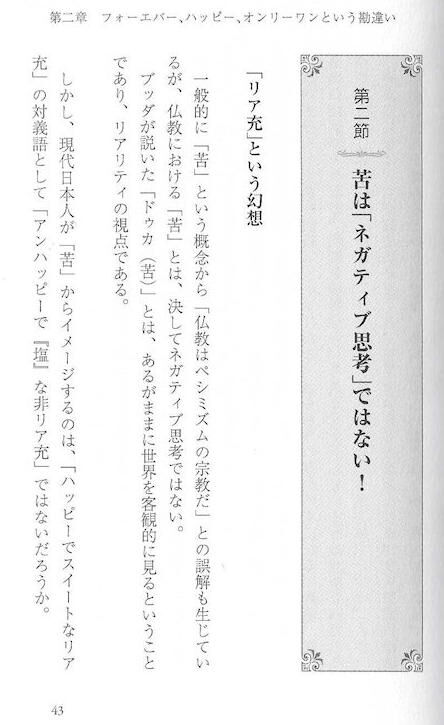 第二章　フォーエバー、ハッピー、オンリーワンという勘違い
第二節
苦は「ネガティブ思考」ではない！
「リア充」という幻想
一般的に「苦」という概念から「仏教はペシミズムの宗教だ」との誤解も生じてい
るが、仏教における「苦」とは、決してネガティブ思考ではない。
ブッダが説いた「ドゥカ（苦）」とは、あるがままに世界を客観的に見るということ
であり、リアリティの視点である。
しかし、現代日本人が「苦」からイメージするのは、「ハッピーでスイートなリア
充」の対義語として「アンハッピーで『塩』な非リア充」ではないだろうか。
43